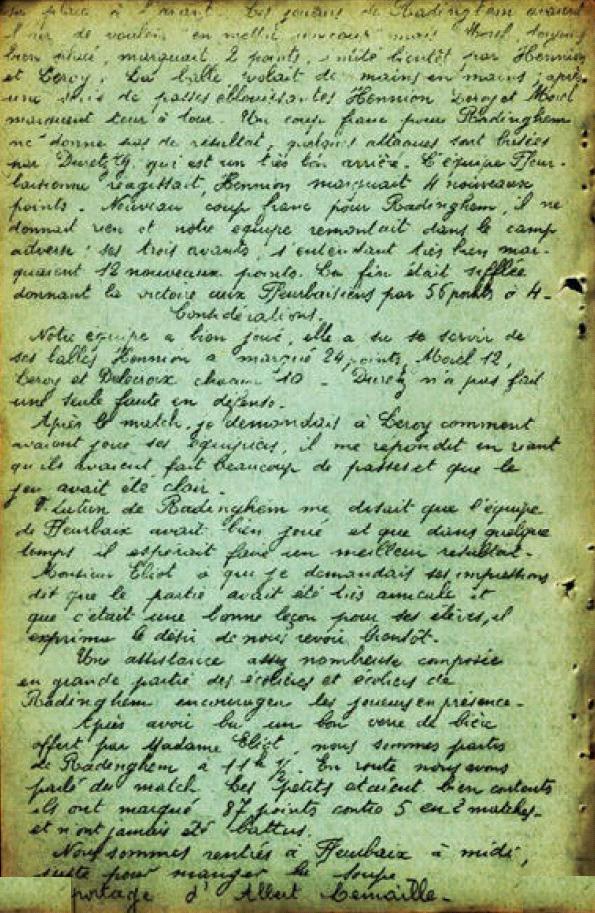 place à l'avant. Les joueurs de Radinghem avaient
l'air de vouloir en mettre mais Morel, toujours
bien placé, marquait 2 points, imité bientôt par Hennion
et Leroy. La balle volait de mains en mains ; après
une série de passes éblouissantes Hennion Leroy et Morel
marquent tour à tour. Un coup franc pour Radinghem
ne donne pas de résultat, quelques attaques sont brisées
par Duretz qui est un très bon arrière. L'équipe Fleur-
baisienne réagissait, Hennion marquait 4 nouveaux
points. Nouveau coup franc pour Radinghem, il ne
donnait rien et notre équipe remontait dans le camp
adverse ; ses trois avants, s'entendant très bien mar-
quaient 12 nouveaux points. La fin était sifflée
donnant la victoire aux Fleurbaisiens par 56 points à 4-
Considérations.
Notre équipe a bien joué, elle a su se servir de
ses balles Hennion a marqué 24 points, Morel 12,
Leroy et Delacroix chacun 10 - Duretz n'a pas fait
une seule faute en défense.
Après le match, je demandais à Leroy comment
avaient joué ses équipiers, il me répondit en riant
qu'ils avaient fait beaucoup de passes et que le
jeu avait été clair.
de Radinghem me disait que l'équipe
de Fleurbaix avait bien joué et que dans quelque
temps il espérait faire un meilleur résultat-
Monsieur Eliot à qui je demandais ses impressions
dit que la partie avait été très amicale et
que c'était une bonne leçon pour ses élèves, il
exprima le désir de nous revoir bientôt.
Une assistance assez nombreuse composée
en grande partie des écolières et écoliers de
Radinghem encourager les joueurs en présence-
Après avoir bu un bon verre de bière
offert par Madame Eliot, nous sommes partis
de Radinghem à 11h ½. En route nous avons
parlé du match. Les petits étaient bien contents
ils ont marqué 87 points contre 5 en 2 matches-
et n'ont jamais été battus.
Nous sommes rentrés à Fleurbaix à midi,
juste pour manger la soupe
portage d'Albert Lemaille-